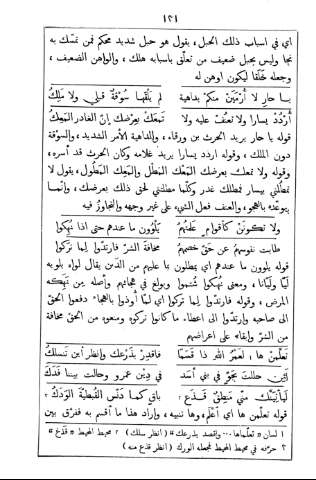 ١٢١
اى فى اسباب ذلك الحبل، يقول هو حبل شديد محكم فمن تمسّك به
نجا وليس بحبل ضعيف من تعلّق باسبابه هلك، والواهن الضعيف،
وجعله خَلَقا ليكون اوهن له
يا حارِ لا أُرْمَيَنْ منكمْ بداهيةٍ لم يلقَها سُوقةٌ قبلى ولا ملكُ
أُرْدُدْ يسارا ولا تعنُفْ عليه ولا تمعَكْ بعرضك إنّ الغادر المَعِكُ
قوله يا حار يريد الحرث بن ورقاء، والداهية الأمر الشديد، والسوقة
دون الملك، وقوله اردد يسارا يريد غلامه وكان الحرث قد أسره،
وقوله ولا تمعك بعرضك المَعْك المَطْل والمَعِك المَطول، يقول لا
تمطلنى بيسار فمطلك غدر وكلّما مطلتنى لحق ذلك بعرضك، وإنّما
يتوعّده بالهجو، والعنف فعل الشىء على غير وجهه والتجاوز فيه
ولا تكوننْ كأقوامٍ علمتَهمُ يلوون ما عندهم حتى اذا نُهِكوا
طابت نفوسهمُ عن حقّ خصمهمُ مخافةَ الشرّ فارتدّوا لِما تركوا
قوله يلوون ما عندهم اى يمطلون بما عليهم من الدين يقال لواه يلويه
ليّا ولَيّانا، ومعنى نهكوا شُتموا وبولغ فى هجائهم وأصله من نَهِكه
المرض، وقوله فارتدّوا لما تركوا اى لمّا أوذوا بالهجاء دفعوا الحقّ
الى صاحبه وارتدّوا الى اعطاء ما كانوا تركوه ومنعوه من الحق مخافة
من الشرّ وإبقاء على اعراضهم
تعلّمنْ ها لعمرُ الله ذا قسَمًا فاقدِرْ بذَرعك وانظر أين تنسلكُ
لئِن حللتَ بجوٍّ فى بنى أسد فى دين عمرو وحالت بيننا فَدَكُ
ليأتينّك منّى منطقٌ قذَعٌ باقٍ كما دنّس القُبطيّةَ الودَكُ
قوله تعلّمن ها اى اعلم، وها تنبيه، وإراد هذا ما أقسم به ففرّق بين
١ لسان » تعلّماها ... واقصد بذرعك« (انظر سلك) ٢ محيط المحيط » قذع «
٣ حرّفه فى محيط المحيط فجعله الورك (انظر قذع منه)